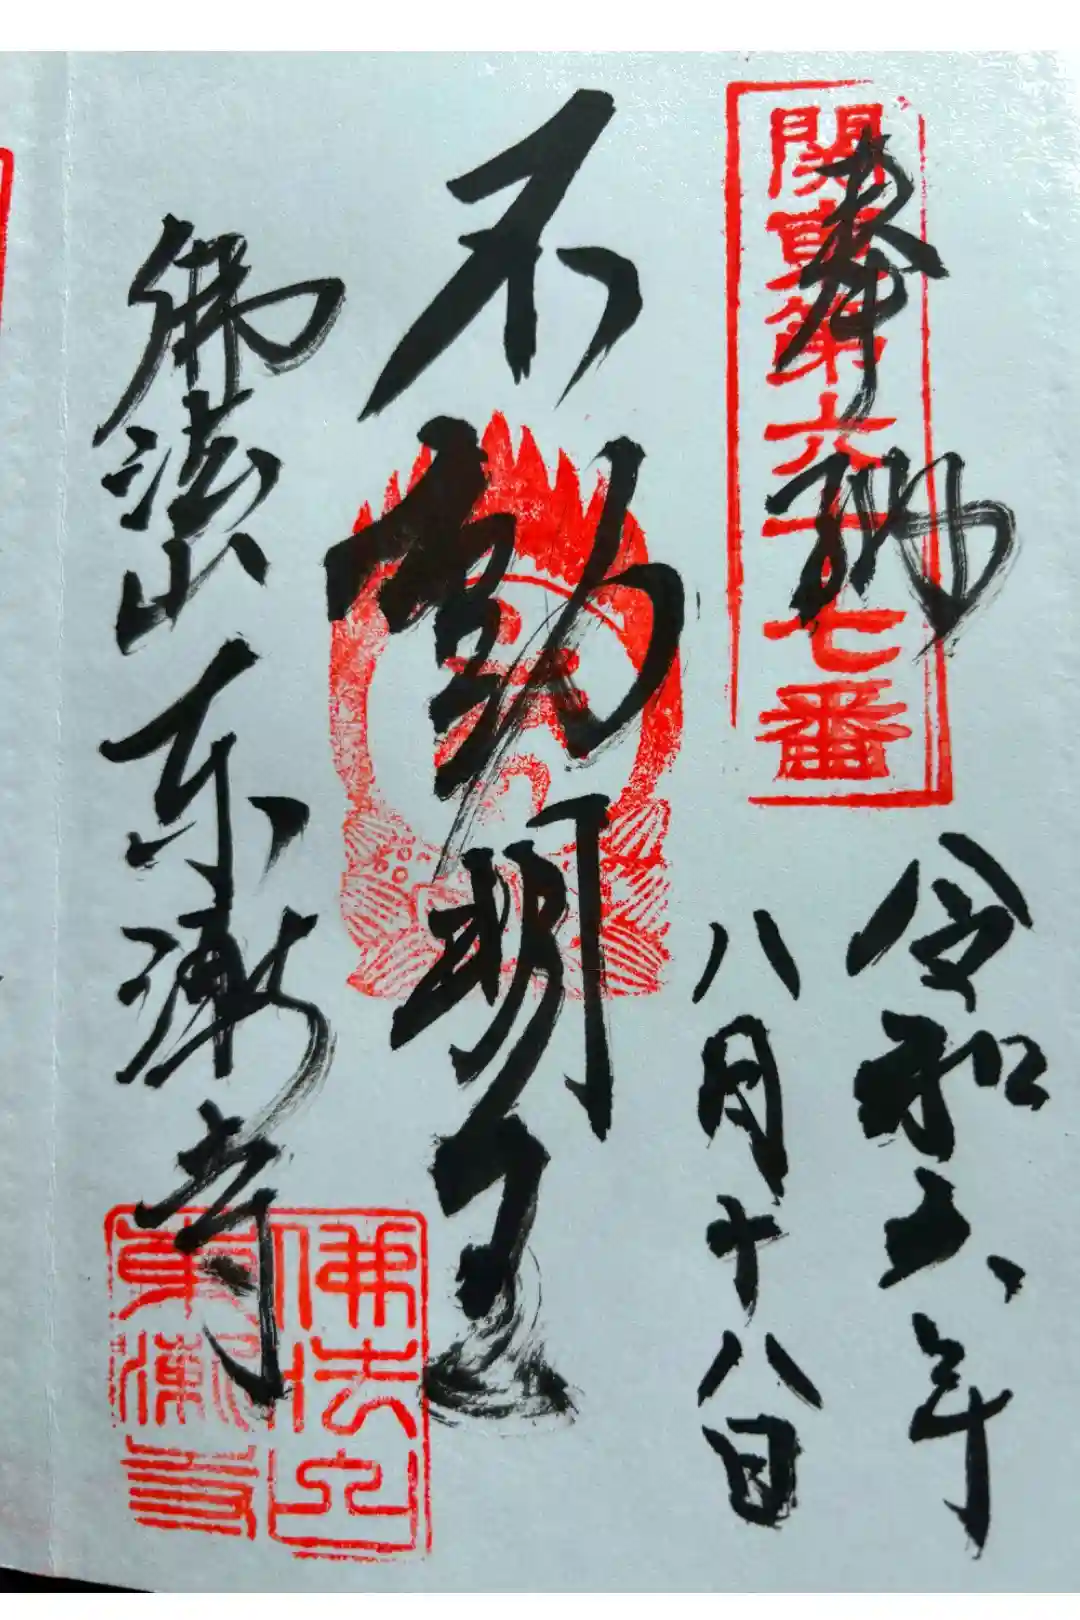 関東第六十七番
奉納
令和六年
八月十八日
不動明王
佛法山東漸寺
佛法山
東漸寺